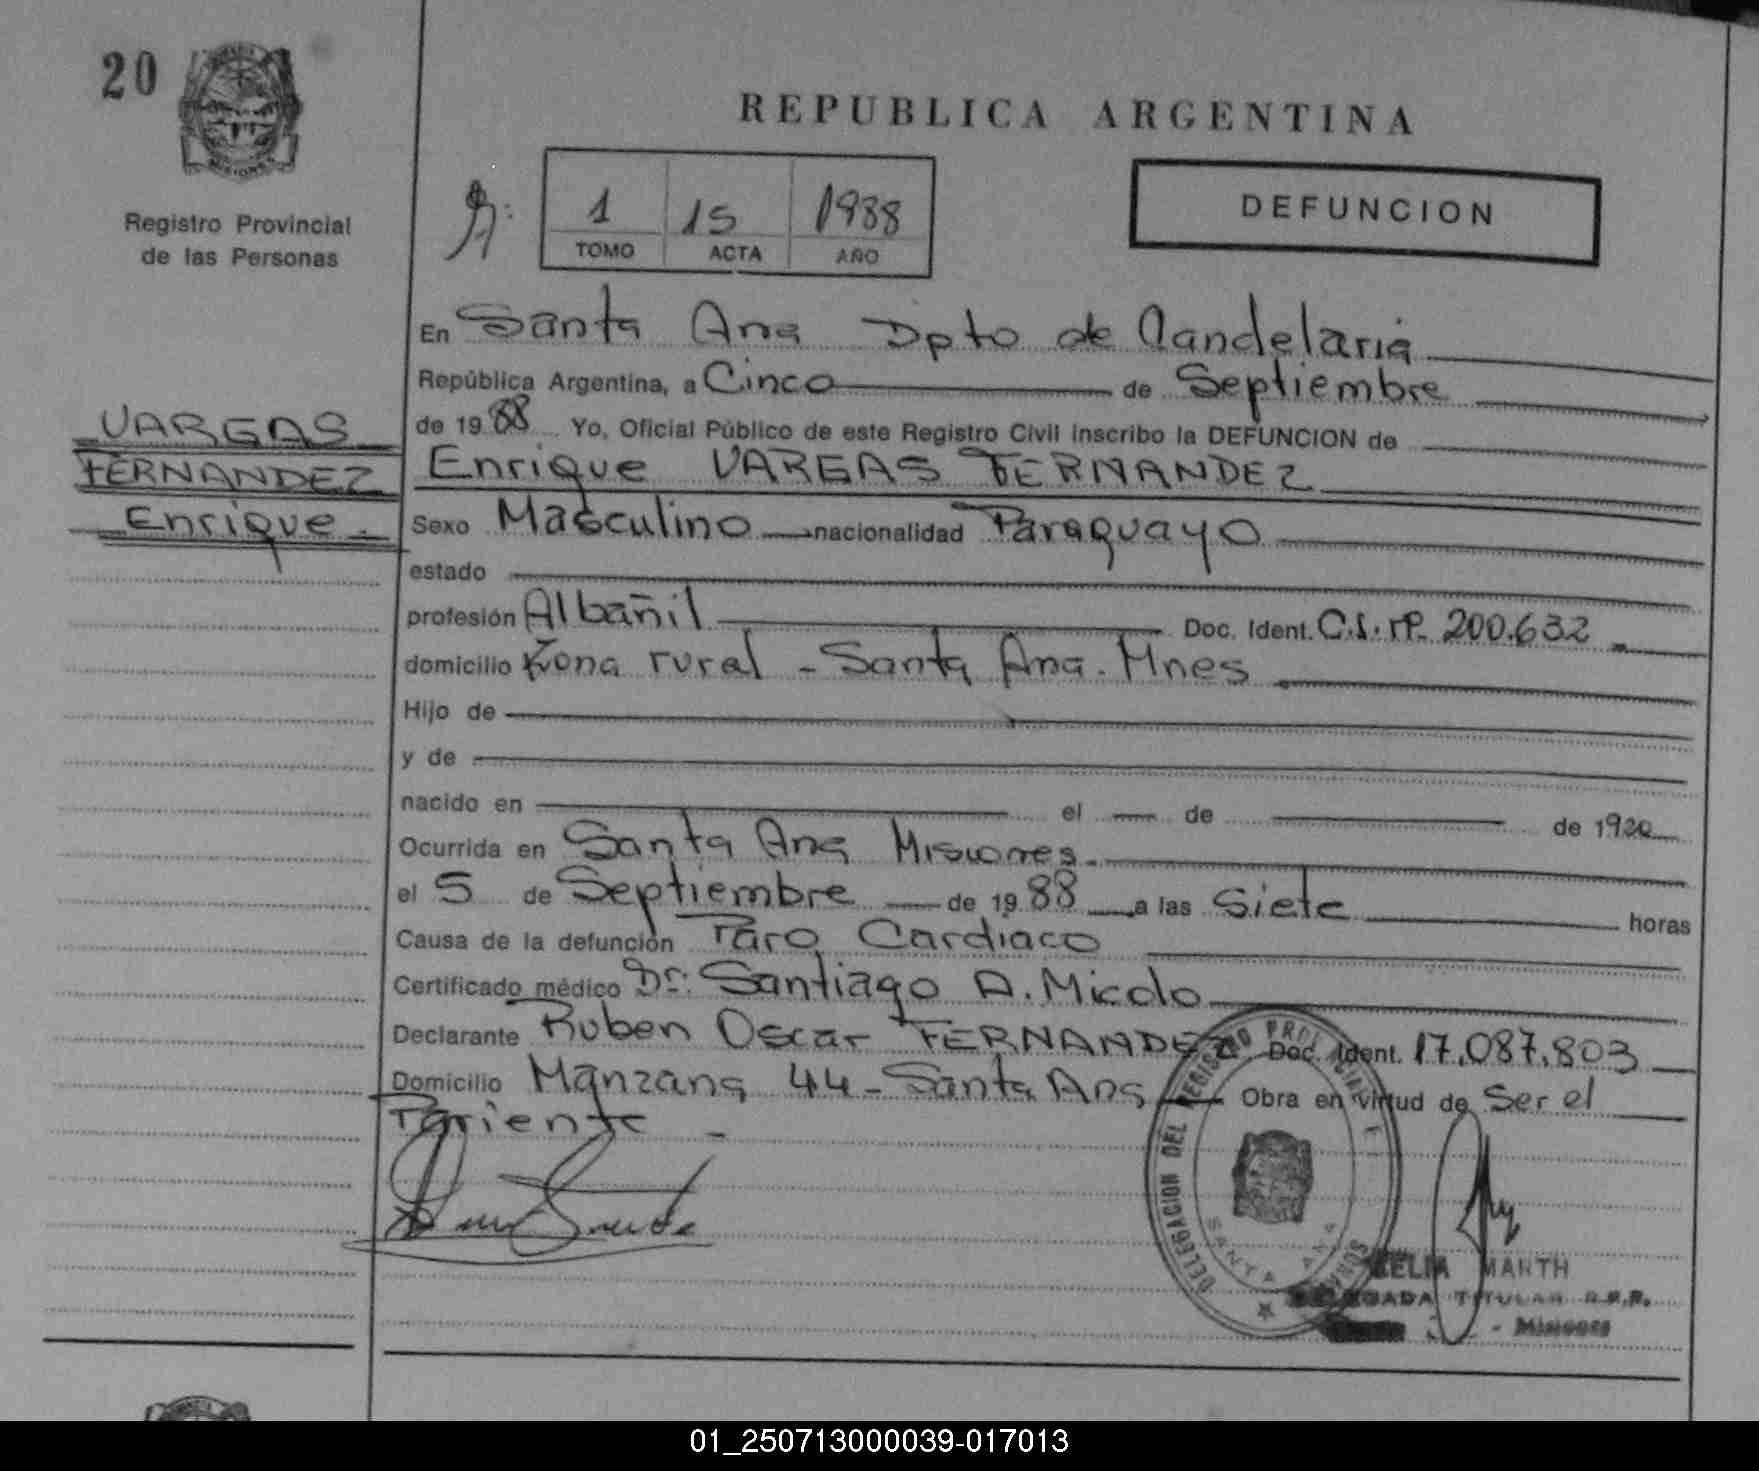 20
REPUBLICA ARGENTINA
Registro Provincial
de las Personas
1 15 1988
TOMO ACTA AÑO
DEFUNCION
VARGAS
FERNANDEZ
Enrique
En Santa Ana Dpto de Candelaria
República Argentina, a Cinco de Septiembre
de 1988 Yo, Oficial Público de este Registro Civil inscribo la DEFUNCION de
Enrique VARGAS FERNANDEZ
Sexo Masculino nacionalidad Paraguayo
estado
profesión Albañil Doc. Ident. C.I. 200.632
domicilio Zona rural - Santa Ana. Mnes
Hijo de
y de
nacido en el de de 1920
Ocurrida en Santa Ana Misiones.
el 5 de Septiembre de 1988 a las Siete horas
Causa de la defunción Paro Cardiaco
Certificado médico Dr: Santiago A. Micolo
Declarante Ruben Oscar FERNANDEZ Doc. Ident. 17.087.803
Domicilio Manzana 44 - Santa Ana Obra en virtud de Ser el
Pariente -
DELEGACION DEL REGISTRO PROVINCIAL
SANTA ANA
MARTH
TITULAR
- Misiones
01_250713000039-017013